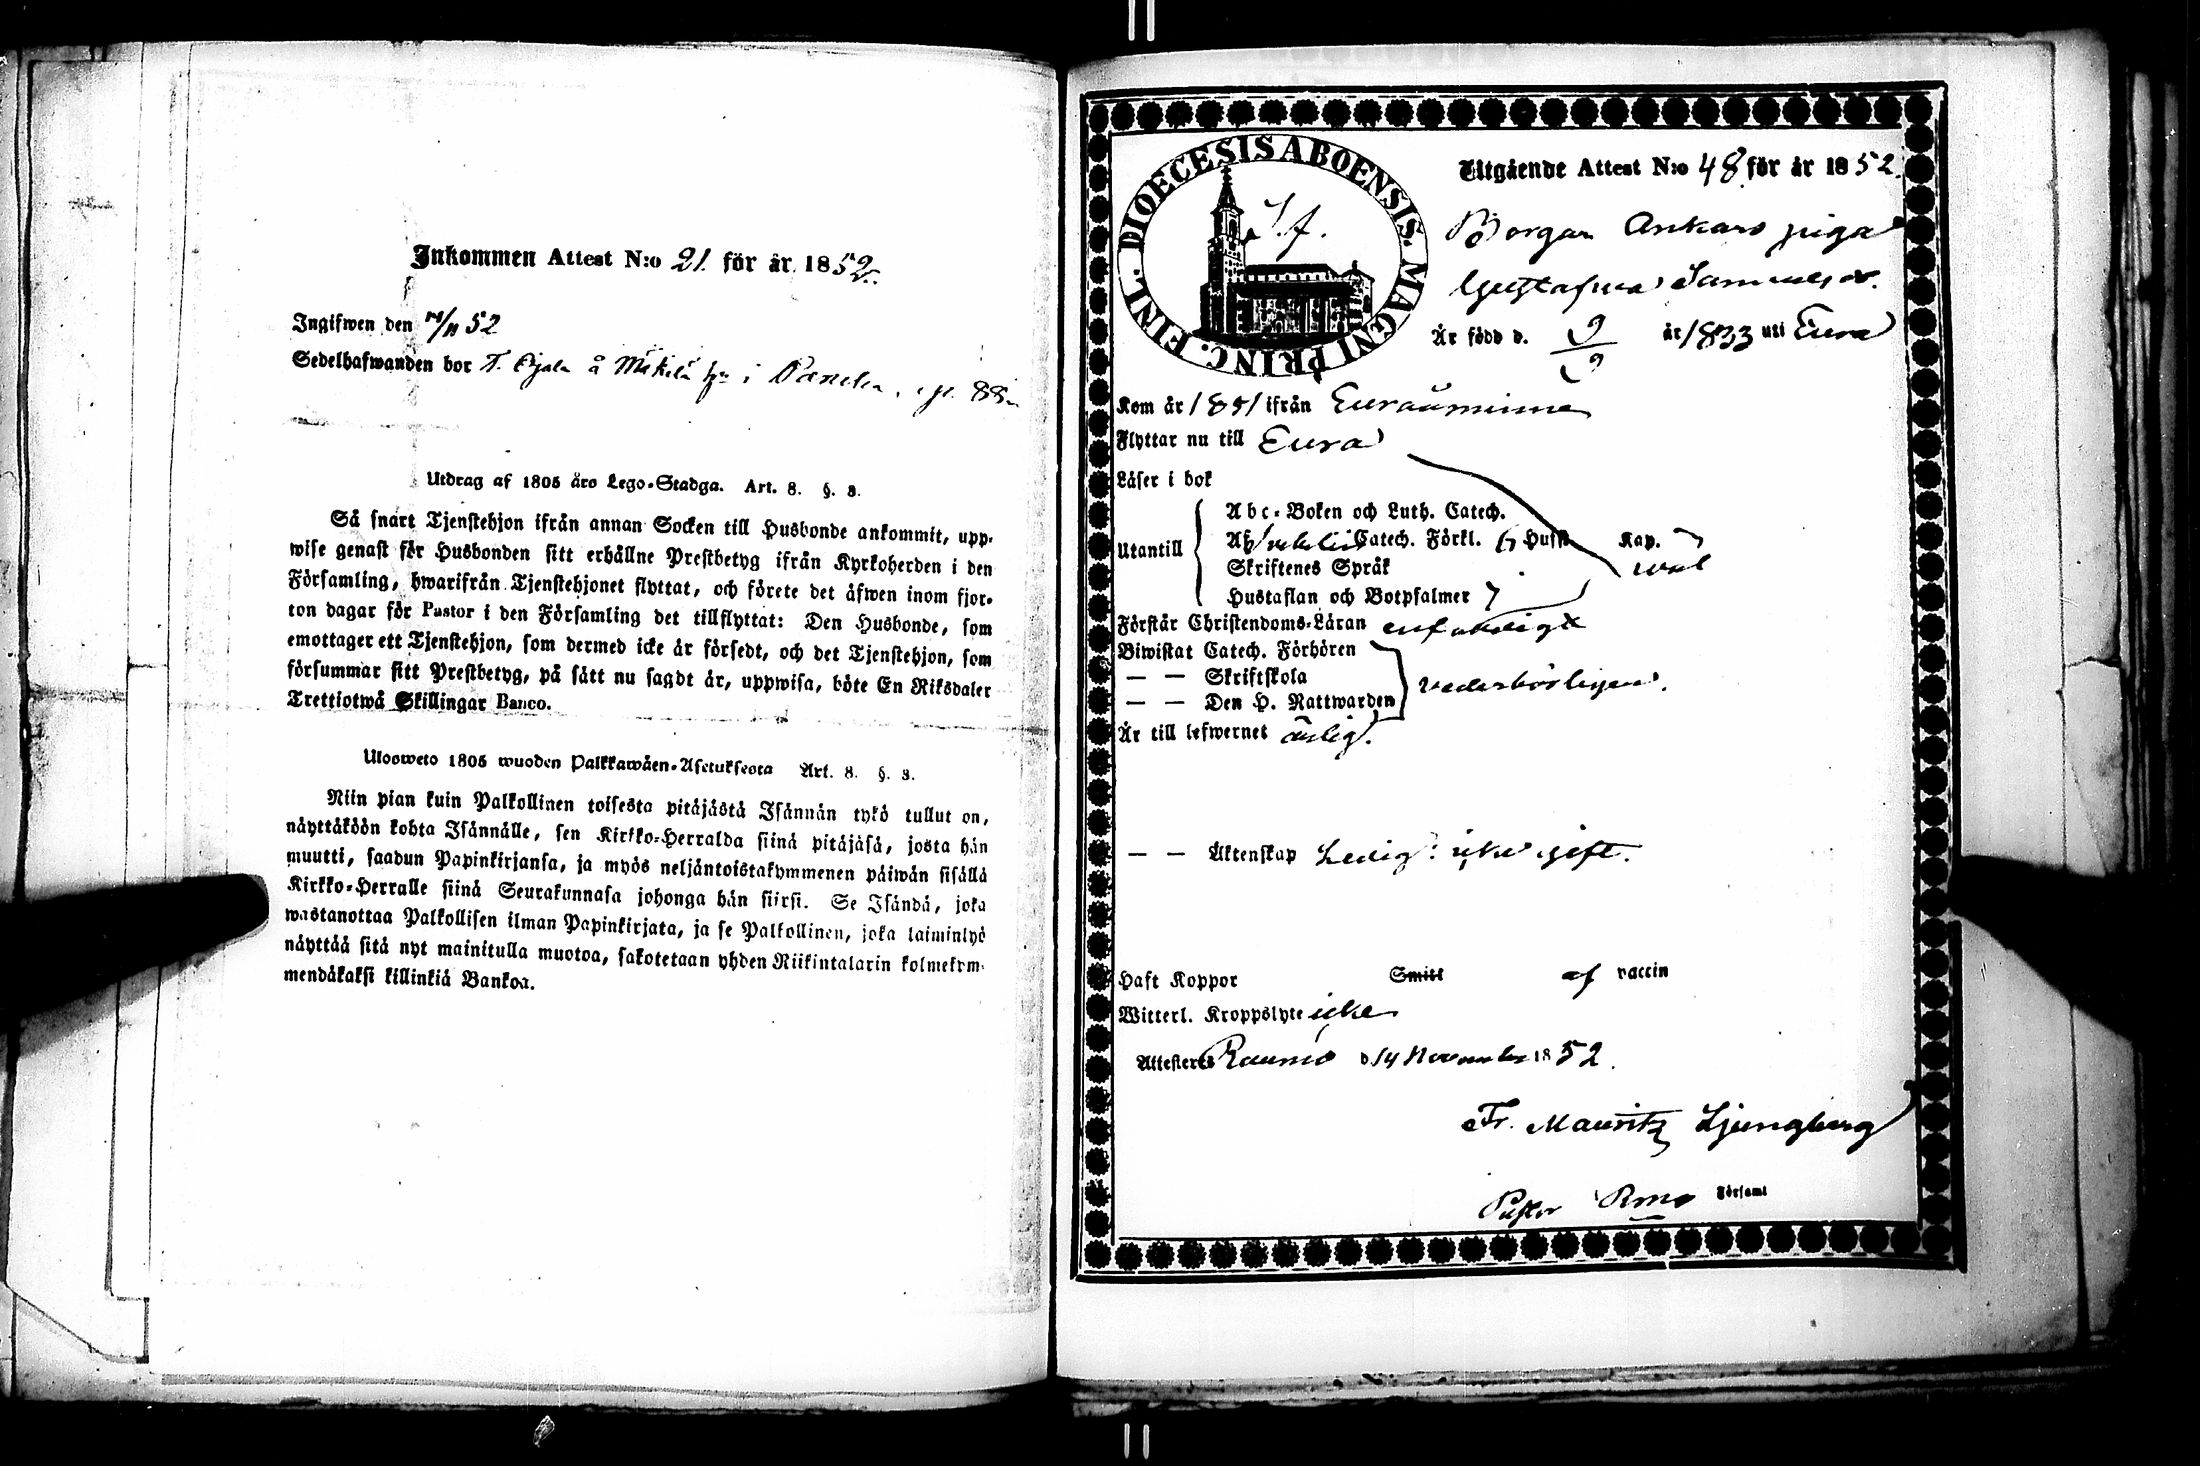 Inkommen Attest N:o 21. för år 1852.
Ingifwen den /11 52
Sedelhafwanden bor å Mäkilä i
Utdrag af 1805 års Lego-Stadga. Art. 8. §. 3.
Så snart Tjenstehjon ifrån annan Socken till Husbonde ankommit, upp-
wise genast för Husbonden sitt erhållne Prestbetyg ifrån Kyrkoherden i den
Församling, hwarifrån Tjenstehjonet flyttat, och förete det äfwen inom fjor-
ton dagar för Pastor i den Församling det tillflyttat: Den Husbonde, som
emottager ett Tjenstehjon, som dermed icke är försedt, och det Tjenstehjon, som
försummar sitt Prestbetyg, på sätt nu sagdt är, uppwisa, böte En Riksdaler
Trettiotwå Skillingar Banco.
Ulosweto 1805 wuoden Palkkawäen-Asetuksesta Art. 8. §. 3.
Niin pian kuin Palkollinen toisesta pitäjästä Isännän tykö tullut on,
näyttäköön kohta Isännälle, sen Kirkko-Herralda siinä pitäjäsä, josta hän
muutti, saadun Papinkirjansa, ja myös neljäntoistakymmenen päiwän sisällä
Kirkko-Herralle siinä Seurakunnasa johonga hän siirsi. Se Isändä, joka
wastanottaa Palkollisen ilman Papinkirjata, ja se Palkollinen, joka laiminlyö
näyttää sitä nyt mainitulla muotoa, sakotetaan yhden Riikintalarin kolmekym-
mendäkaksi killinkiä Bankoa.
FINL. DIOECESIS ABOENSIS. MAGNI PRINC.
S. f.
Utgående Attest N:o 48 för år 1852.
Borgar Ankars piga
Gustafwa Samuelsdr.
Är född d. 9/9 år 1833 uti Eura
Kom år 1851 ifrån Euraåminne
Flyttar nu till Eura
Läser i bok
Abc-Boken och Luth. Catech.
Utantill Catech. Förkl. Husst Kap.
Skriftenes Språk wäl
Hustaflan och Botpsalmer
Förstår Christendoms-Läran enfaldigt
Biwistat Catech. Förhören
— — Skriftskola
— — Den H. Nattwarden wederbörligen.
Är till lefwernet ärlig.
— — Äktenskap Ledig: icke gift.
Haft Koppor Smitt af vaccin
Witterl. Kroppslyte icke
Attesteras Raumo d 14 November 1852.
Fr. Mauritz Ljungberg
Pastor Rmo Församl